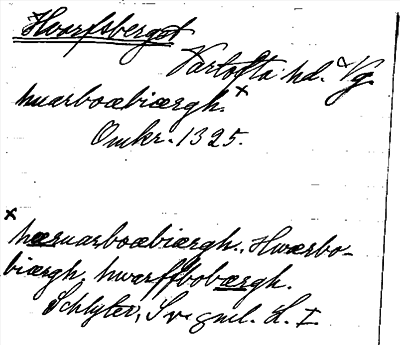 Hvarfsberget
Vartofta hd. Vg.
huarboæbiærgh. x
Omkr. 1325.
x
hæruarboæbiærgh., Hwærbo-
biærgh, hwarffbobærgh.
Schlyter, Sv. gml. L. I